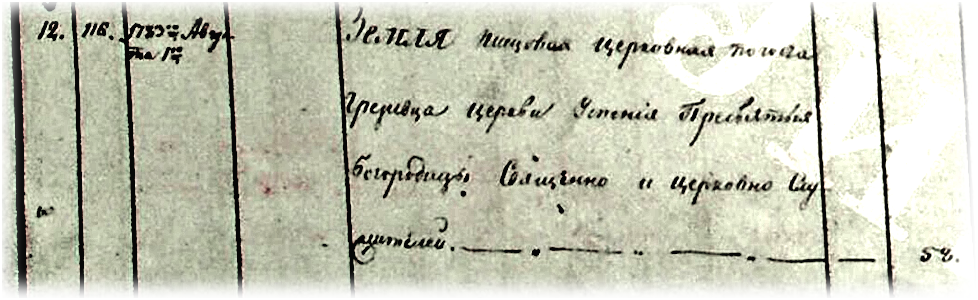 12. 116. 1783го Авгу-
ста 1го
Земля писцовая церковная погоста
церкви Успенія Пресвятыя
Богородицы Священно и церковно Слу-
жителей. 58.